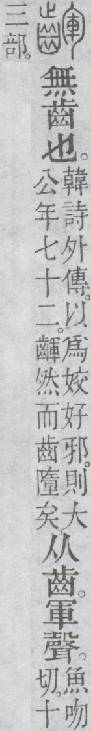 齳 無齒也。韓詩外傳。以爲姣好邪。則大公年七十二。齳然而齒墮矣从齒。軍聲。魚吻切。十
三部。